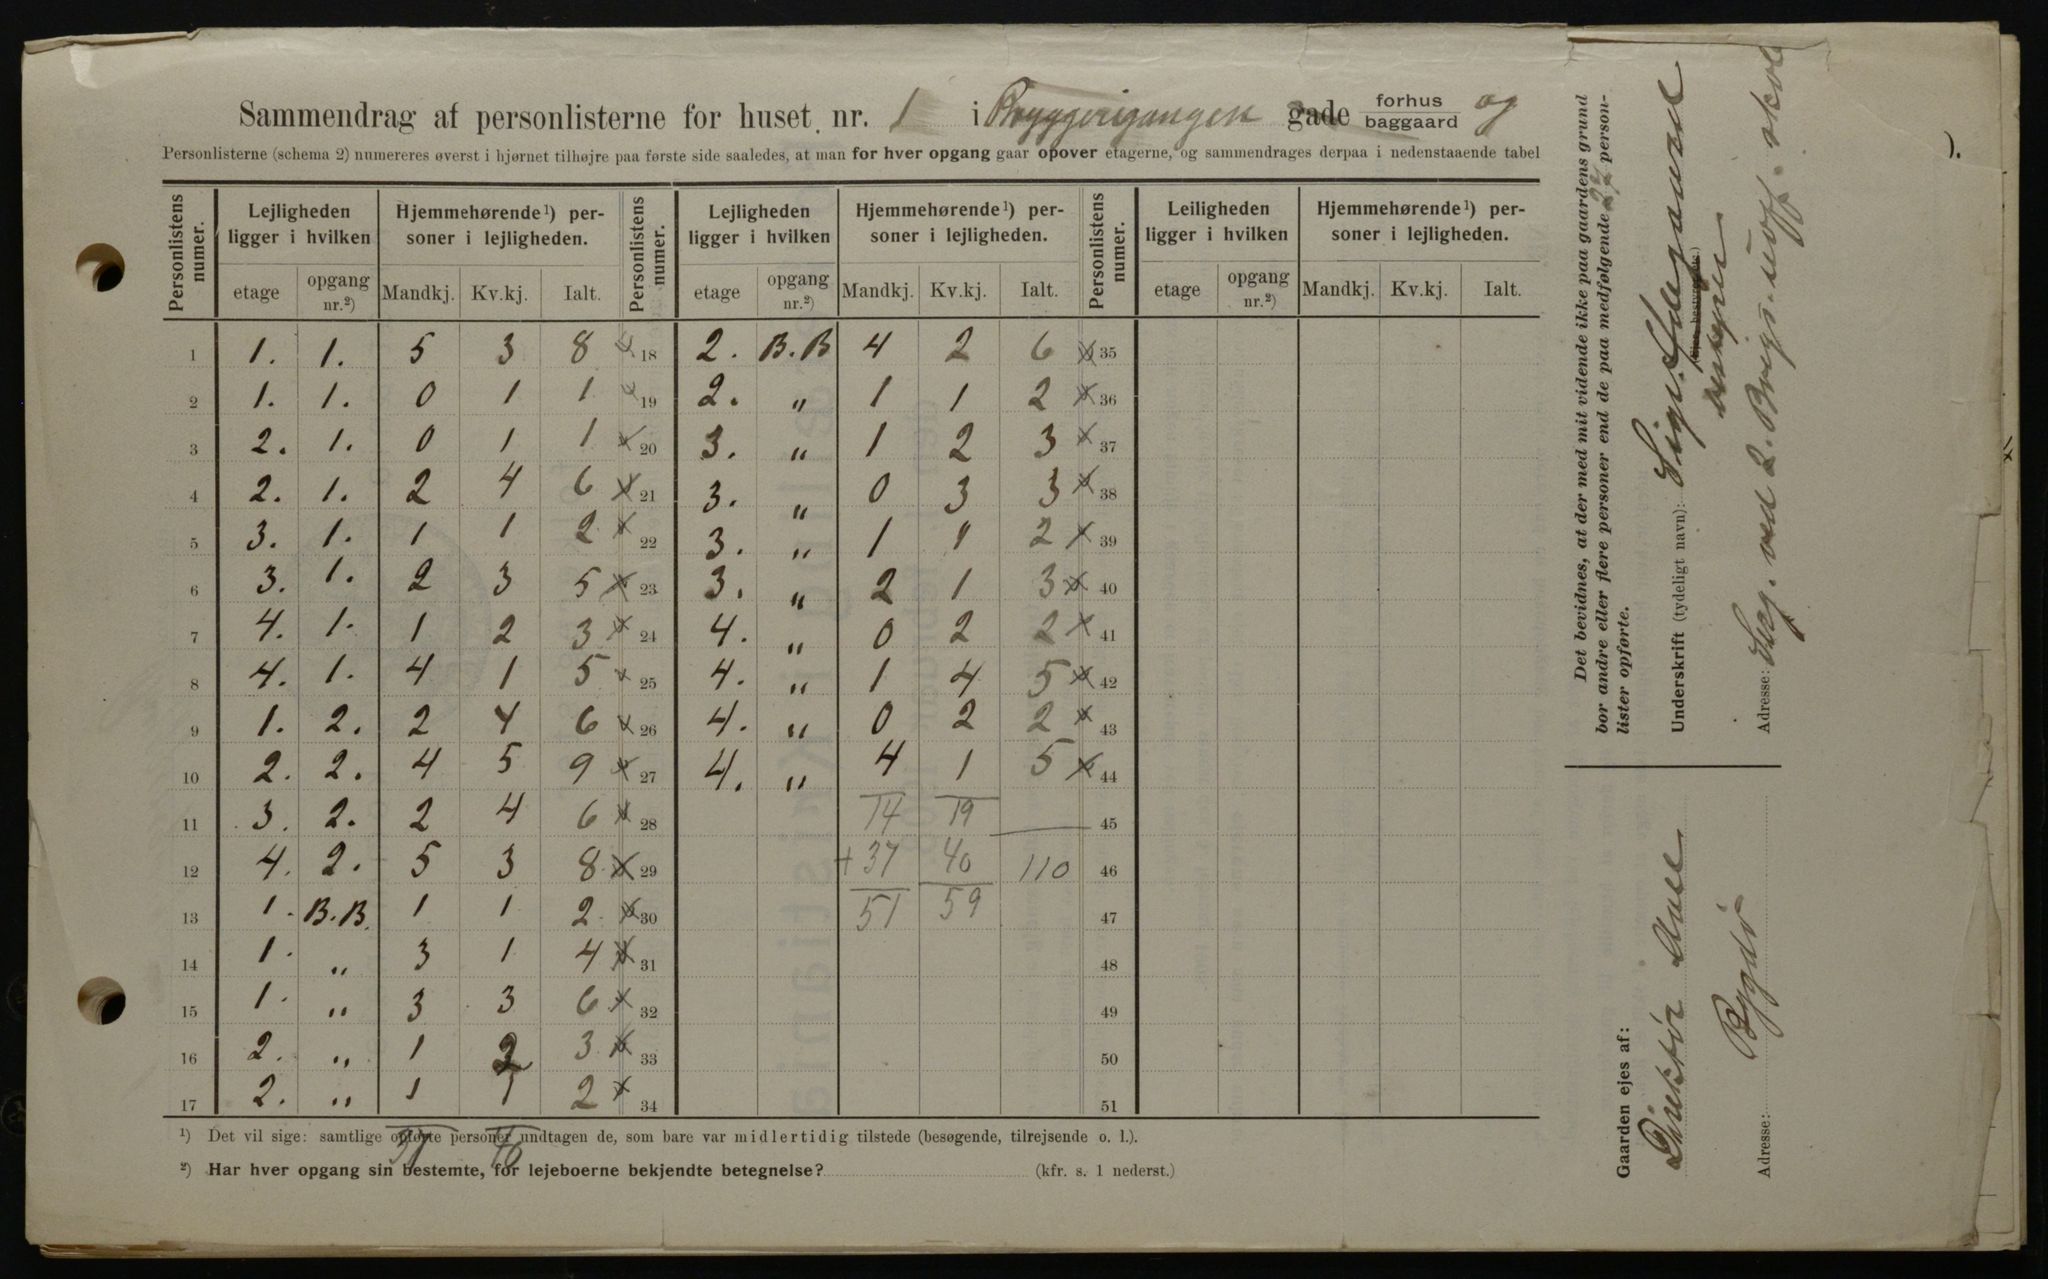 Sammendrag af personlisterne for huset nr. 1 i Bryggerigangen gade forhus baggaard og
Personlisterne (schema 2) numereres øverst i hjørnet tilhøjre paa første side saaledes, at man for hver opgang gaar opover etagerne, og sammendrages derpaa i nedenstaaende tabel
Personlistens numer. Lejligheden ligger i hvilken Hjemmehørende¹) personer i lejligheden. Personlistens numer. Lejligheden ligger i hvilken Hjemmehørende¹) personer i lejligheden. Personlistens numer. Leiligheden ligger i hvilken Hjemmehørende¹) personer i lejligheden.
etage opgang nr.²) Mandkj. Kv.kj. Ialt. etage opgang nr.²) Mandkj. Kv.kj. Ialt. etage opgang nr.²) Mandkj. Kv.kj. Ialt.
1 1. 1. 5 3 8 18 2. B.B 4 2 6 35
2 1. 1. 0 1 1 19 2. " 1 1 2 36
3 2. 1. 0 1 1 20 3. " 1 2 3 37
4 2. 1. 2 4 6 21 3. " 0 3 3 38
5 3. 1. 1 1 2 22 3. " 1 1 2 39
6 3. 1. 2 3 5 23 3. " 2 1 3 40
7 4. 1. 1 2 3 24 4. " 0 2 2 41
8 4. 1. 4 1 5 25 4. " 1 4 5 42
9 1. 2. 2 4 6 26 4. " 0 2 2 43
10 2. 2. 4 5 9 27 4. " 4 1 5 44
11 3. 2. 2 4 6 28 14 19 45
12 4. 2. 5 3 8 29 + 37 40 110 46
13 1. B.B. 1 1 2 30 51 59 47
14 1. " 3 1 4 31 48
15 1. " 3 3 6 32 49
16 2. " 1 2 3 33 50
17 2. " 1 1 2 34 51
37 40
¹) Det vil sige: samtlige opførte personer undtagen de, som bare var midlertidig tilstede (besøgende, tilrejsende o. l.).
²) Har hver opgang sin bestemte, for lejeboerne bekjendte betegnelse? (kfr. s. 1 nederst.)
Det bevidnes, at der med mit vidende ikke paa gaardens grund
bor andre eller flere personer end de paa medfølgende 27 person-
lister opførte.
Underskrift (tydeligt navn): Sigv.
bestyrer
Adresse: Serg. ved 2. Brig. u.off. skole
Gaarden ejes af:
Direktør
Adresse: Bygdø